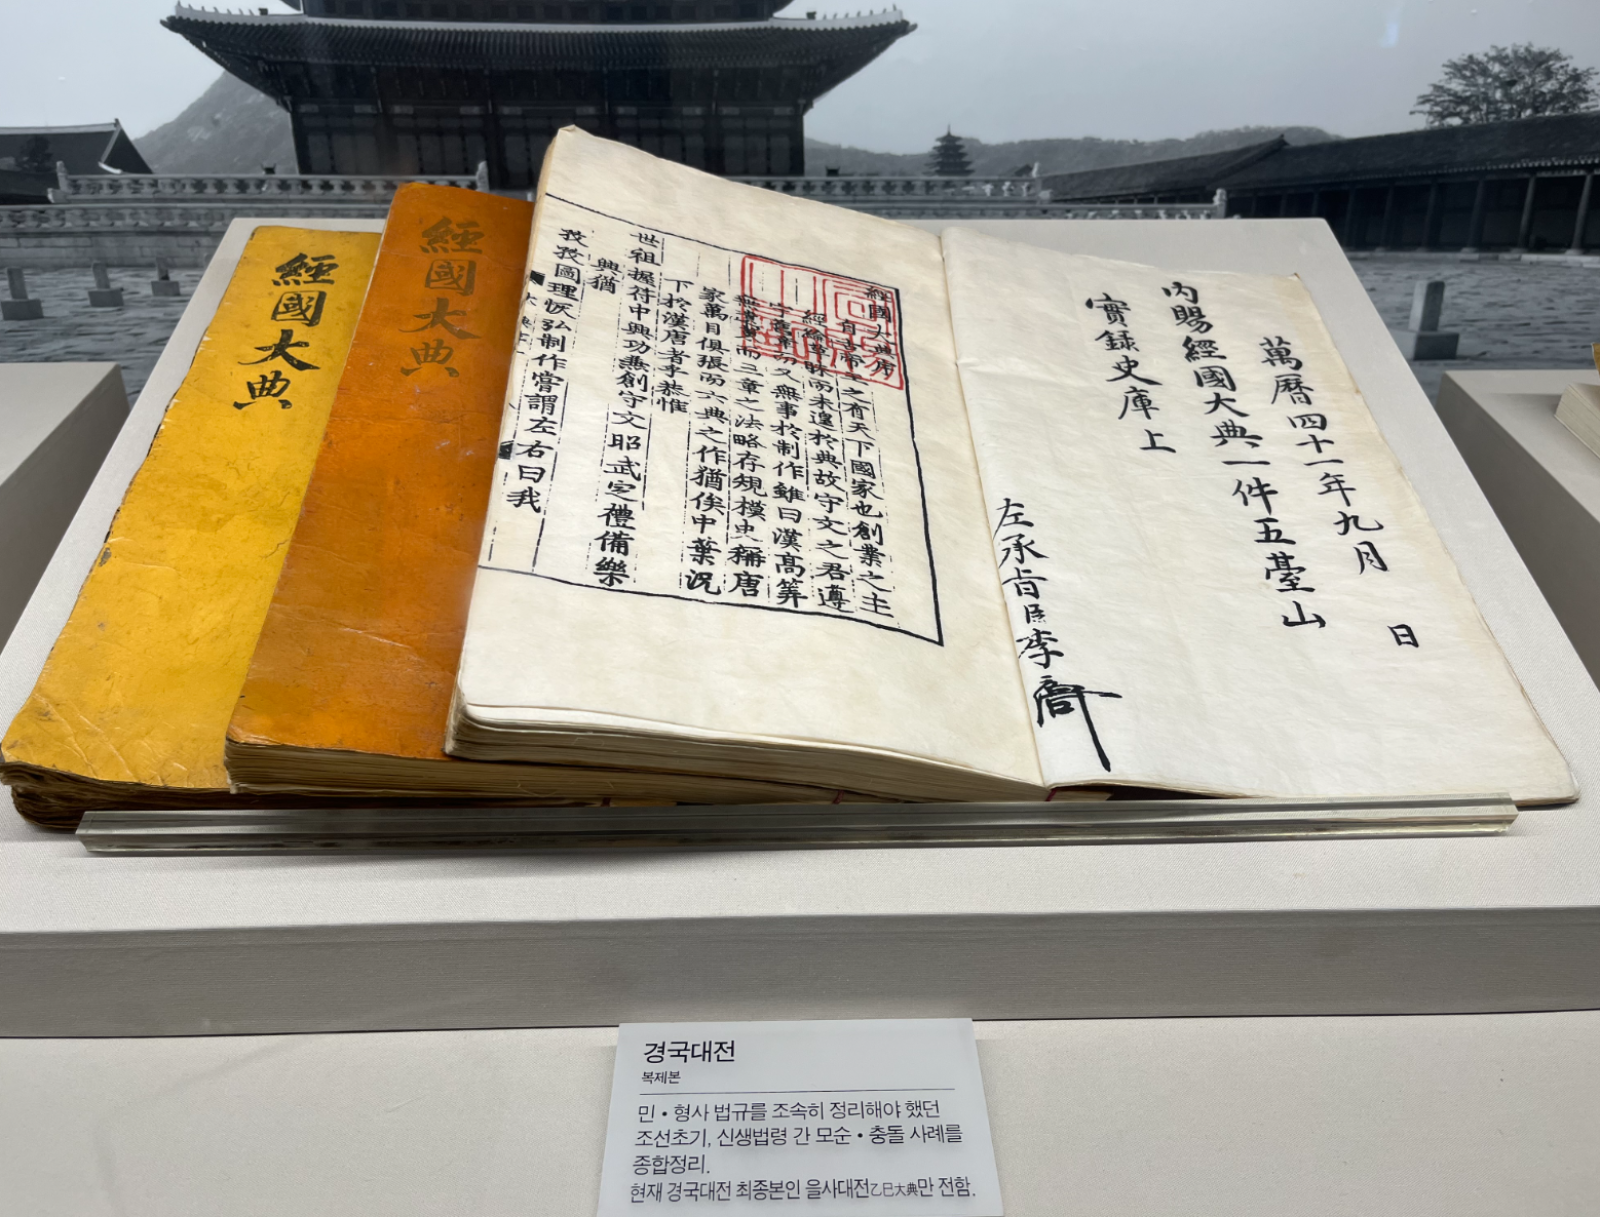 經國大典
經國大典
萬曆四十一年九月 日
內賜經國大典一件五臺山
實錄史庫上
左承旨臣李
經國大典序
自古帝王之有天下國家也創業之主
經綸草昧而未遑於典故守文之君遵
守舊章而又無事於制作雖曰漢高筭
無遺策而三章之法略存規模史稱唐
家萬目俱張而六典之作猶俟中葉況
下於漢唐者乎恭惟
世祖握符中興功兼創守文昭武定禮備樂
興猶
孜孜圖理恢弘制作嘗謂左右曰我
경국대전
복제본
민・형사 법규를 조속히 정리해야 했던
조선초기, 신생법령 간 모순・충돌 사례를
종합정리.
현재 경국대전 최종본인 을사대전乙巳大典만 전함.